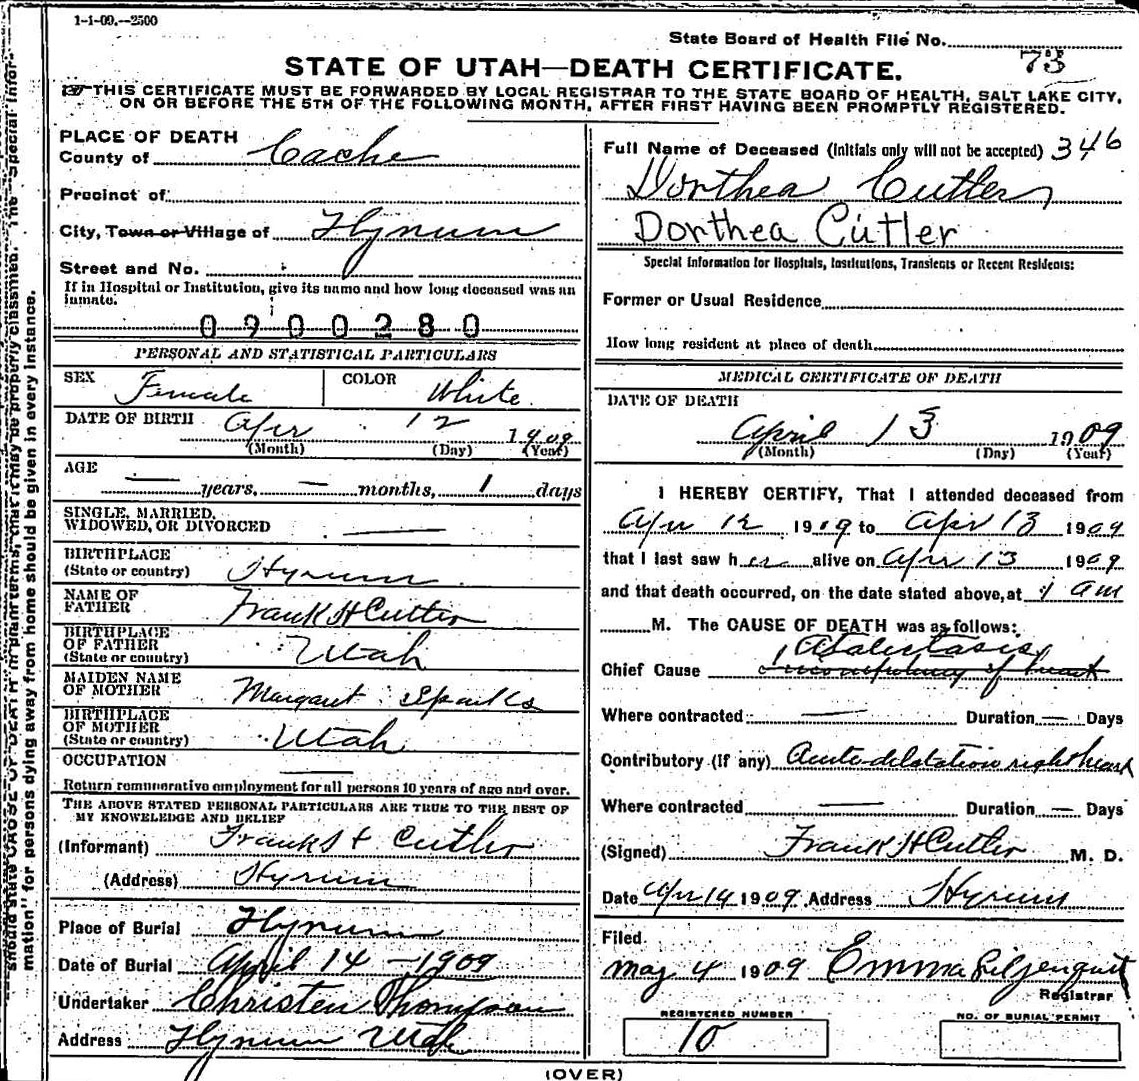 1-1-09.--2500
State Board of Health File No.
73
STATE OF UTAH—DEATH CERTIFICATE.
THIS CERTIFICATE MUST BE FORWARDED BY LOCAL REGISTRAR TO THE STATE BOARD OF HEALTH, SALT LAKE CITY,
ON OR BEFORE THE 5TH OF THE FOLLOWING MONTH, AFTER FIRST HAVING BEEN PROMPTLY REGISTERED.
PLACE OF DEATH
County of Cache
Precinct of
City, Town or Village of Hyrum
Street and No.
If in Hospital or Institution, give its name and how long deceased was an
inmate.
0900280
PERSONAL AND STATISTICAL PARTICULARS
SEX Female COLOR White.
DATE OF BIRTH Apr 12 1909
(Month) (Day) (Year)
AGE
— years, — months, 1 days
SINGLE, MARRIED,
WIDOWED, OR DIVORCED —
BIRTHPLACE
(State or country) Hyrum
NAME OF
FATHER Frank H Cutler
BIRTHPLACE
OF FATHER
(State or country) Utah
MAIDEN NAME
OF MOTHER Margaret Sparks
BIRTHPLACE
OF MOTHER
(State or country) Utah
OCCUPATION —
Return remunerative employment for all persons 10 years of age and over.
THE ABOVE STATED PERSONAL PARTICULARS ARE TRUE TO THE BEST OF
MY KNOWLEDGE AND BELIEF
(Informant) Frank H Cutler
(Address) Hyrum
Place of Burial Hyrum
Date of Burial April 14 - 1909
Undertaker Christen Thompson
Address Hyrum Utah
Full Name of Deceased (initials only will not be accepted) 346
Dorthea Cutler
Dorthea Cutler
Special Information for Hospitals, Institutions, Transients or Recent Residents:
Former or Usual Residence
How long resident at place of death
MEDICAL CERTIFICATE OF DEATH
DATE OF DEATH
April 13 1909
(Month) (Day) (Year)
I HEREBY CERTIFY, That I attended deceased from
Apr 12 1909 to Apr 13 1909
that I last saw her alive on Apr 13 1909
and that death occurred, on the date stated above, at 1 am
M. The CAUSE OF DEATH was as follows:
Atalectasis
Chief Cause of heart
Where contracted — Duration — Days
Contributory (If any) Acute dilatation right heart
Where contracted — Duration — Days
(Signed) Frank H Cutler M. D.
Date Apr 14 1909 Address Hyrum
Filed
May 4 1909 Emma Liljenquist
Registrar
REGISTERED NUMBER
10
NO. OF BURIAL PERMIT
(OVER)
should state CAUSE OF DEATH in plain terms, that it may be properly classified. The "Special Infor-
mation" for persons dying away from home should be given in every instance.